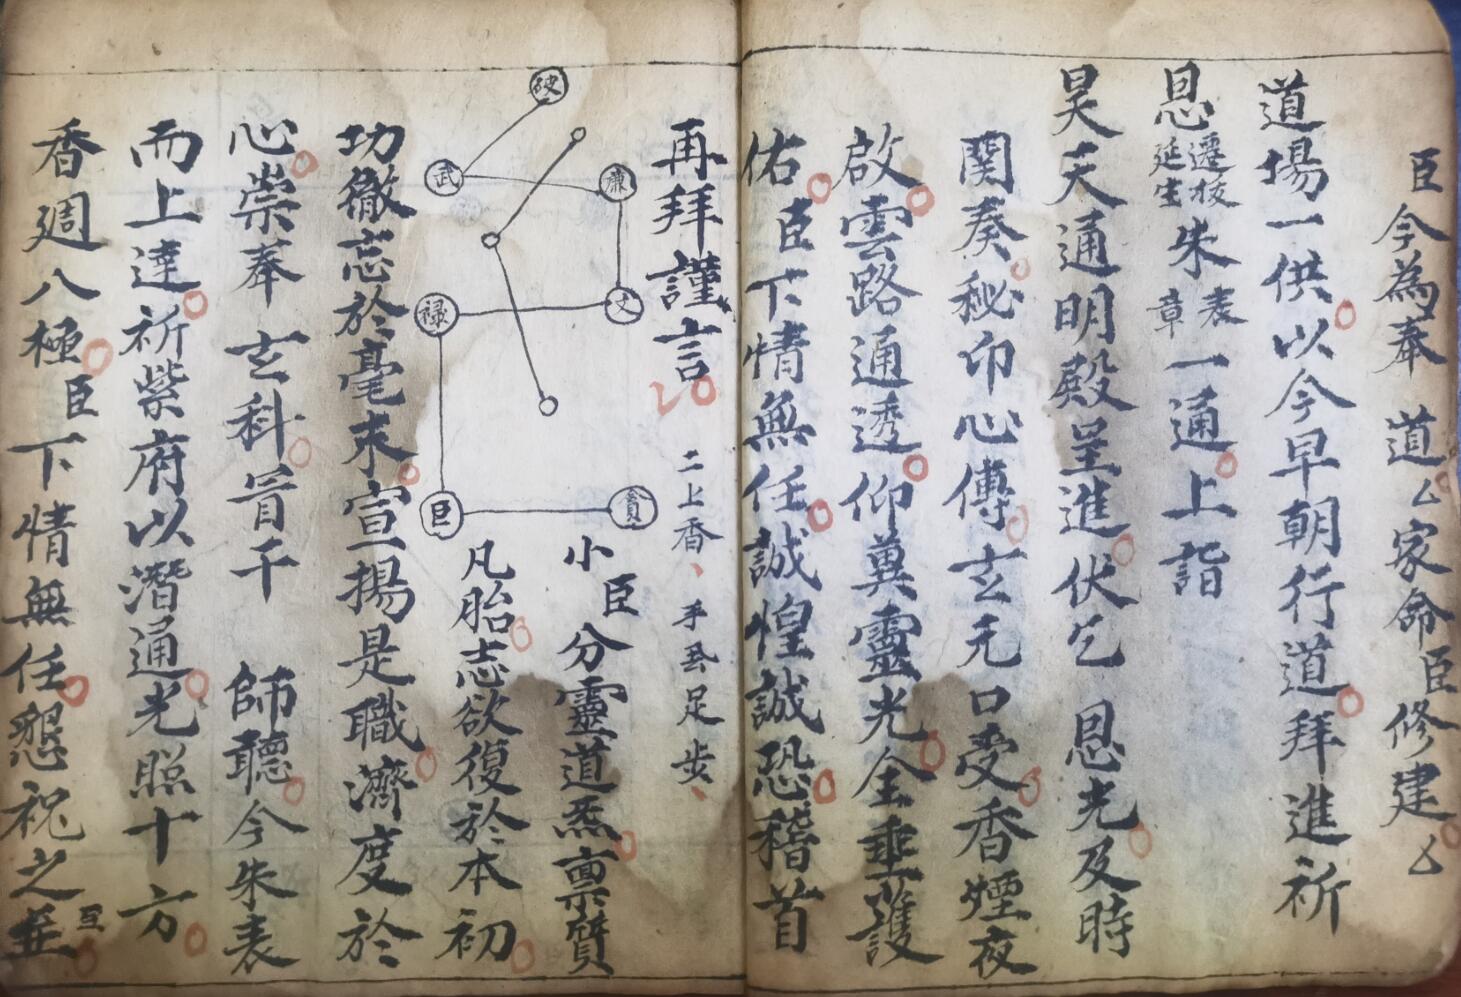 臣今為奉 道〻家命臣修建〻
道場一供以今早朝行道拜進祈
恩遷拔延生朱表章一通上詣
昊天通明殿呈進伏乞 恩光及時
関奏秘印心傳玄元口受香煙夜
啟雲路通透仰冀靈光全垂護
佑臣下情無任誠惶誠恐稽首
再拜謹言 二上香手炁足步
破
武
廉
禄
文
巨
貪
小臣分靈道炁稟質
凡胎志欲復於本初
功徹忘於毫末宣揚是職濟度於
心崇奉 玄科百千 師聽今朱表
而上達祈紫府以潛通光照十方
香週八極臣下情無任懇祝之至